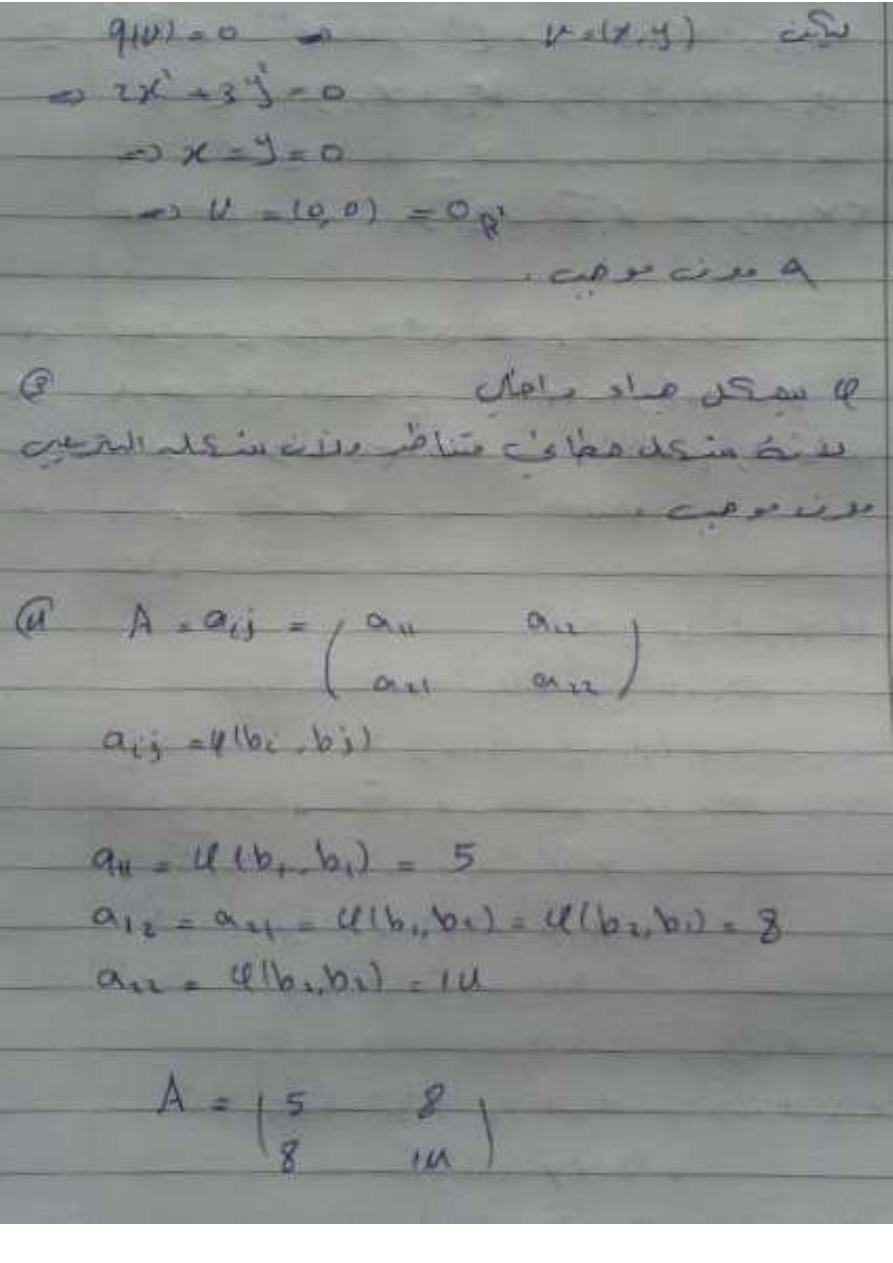 ليكن v = (x, y) ⇒ q(v) = 0
⇒ 2x² + 3y² = 0
⇒ x = y = 0
⇒ v = (0, 0) = 0_R²
q معرف موجب .
③ φ جداء داخلي
متناظر ولأن شكله التربيعي
معرف موجب .
④ A = aij = ( a11 a12
a21 a22 )
aij = φ(bi, bj)
a11 = φ(b1, b1) = 5
a12 = a21 = φ(b1, b2) = φ(b2, b1) = 8
a22 = φ(b2, b2) = 14
A = ( 5 8
8 14 )